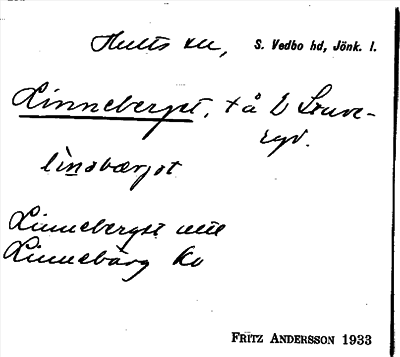 Hults sn, S. Vedbo hd, Jönk. l.
Linneberget, tå 2 Stuve-
ryd.
lìnəbærjət
Linneberget
Linnebärg Ko
FRITZ ANDERSSON 1933